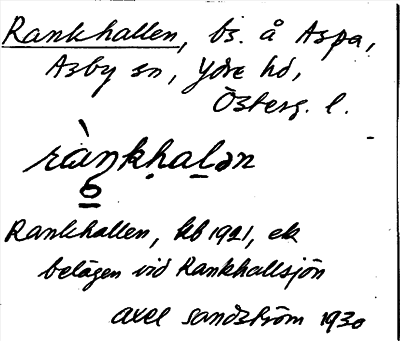 Rankhallen, bs. å Aspa,
Asby sn, Ydre hd,
Österg. l.
ràŋkḥaḻən
6
Rankhallen, kb 1921, ek
belägen vid Rankhallsjön
Axel Sandström 1930